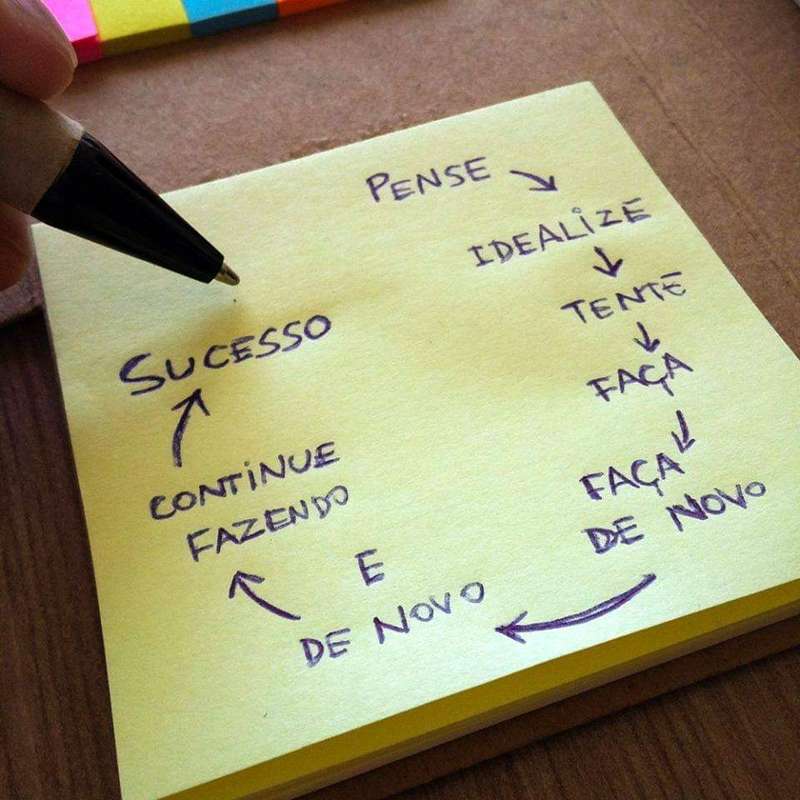 PENSE
IDEALIZE
TENTE
FAÇA
FAÇA
DE NOVO
E
DE NOVO
CONTINUE
FAZENDO
SUCESSO